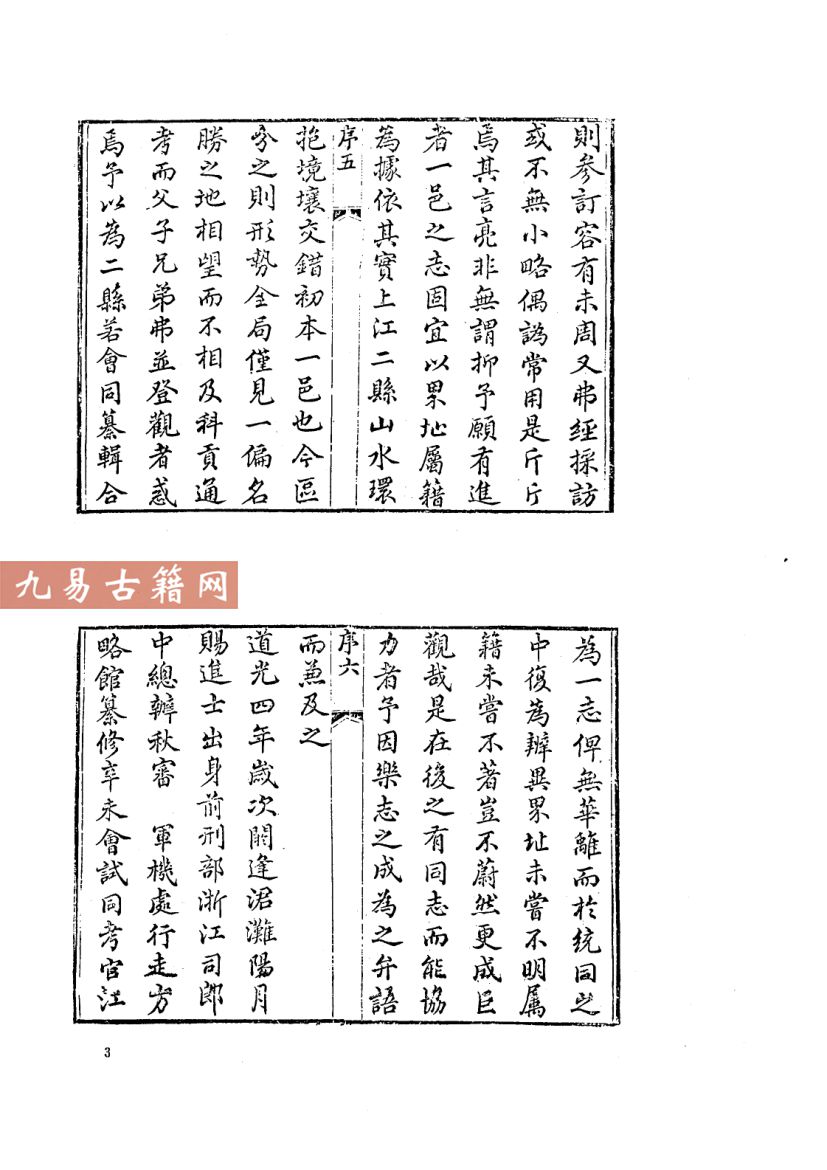 則參訂容有未周又弗經採訪
或不無小略偶譌常用是斤斤
焉其言亮非無謂抑予願有進
者一邑之志固宜以界址屬籍
為據依其實上江二縣山水環
序五
抱境壤交錯初本一邑也今區
分之則形勢全局僅見一偏名
勝之地相望而不相及科貢通
考而父子兄弟弗並登觀者惑
焉予以為二縣若會同纂輯合
為一志俾無華離而於統同之
中復為辨異界址未嘗不明屬
籍未嘗不著豈不蔚然更成巨
觀哉是在後之有同志而能協
力者予因樂志之成為之弁語
序六
而兼及之
道光四年歲次閼逢涒灘陽月
賜進士出身前刑部浙江司郎
中總辦秋審 軍機處行走方
略館纂修辛未會試同考官江
九易古籍网
3